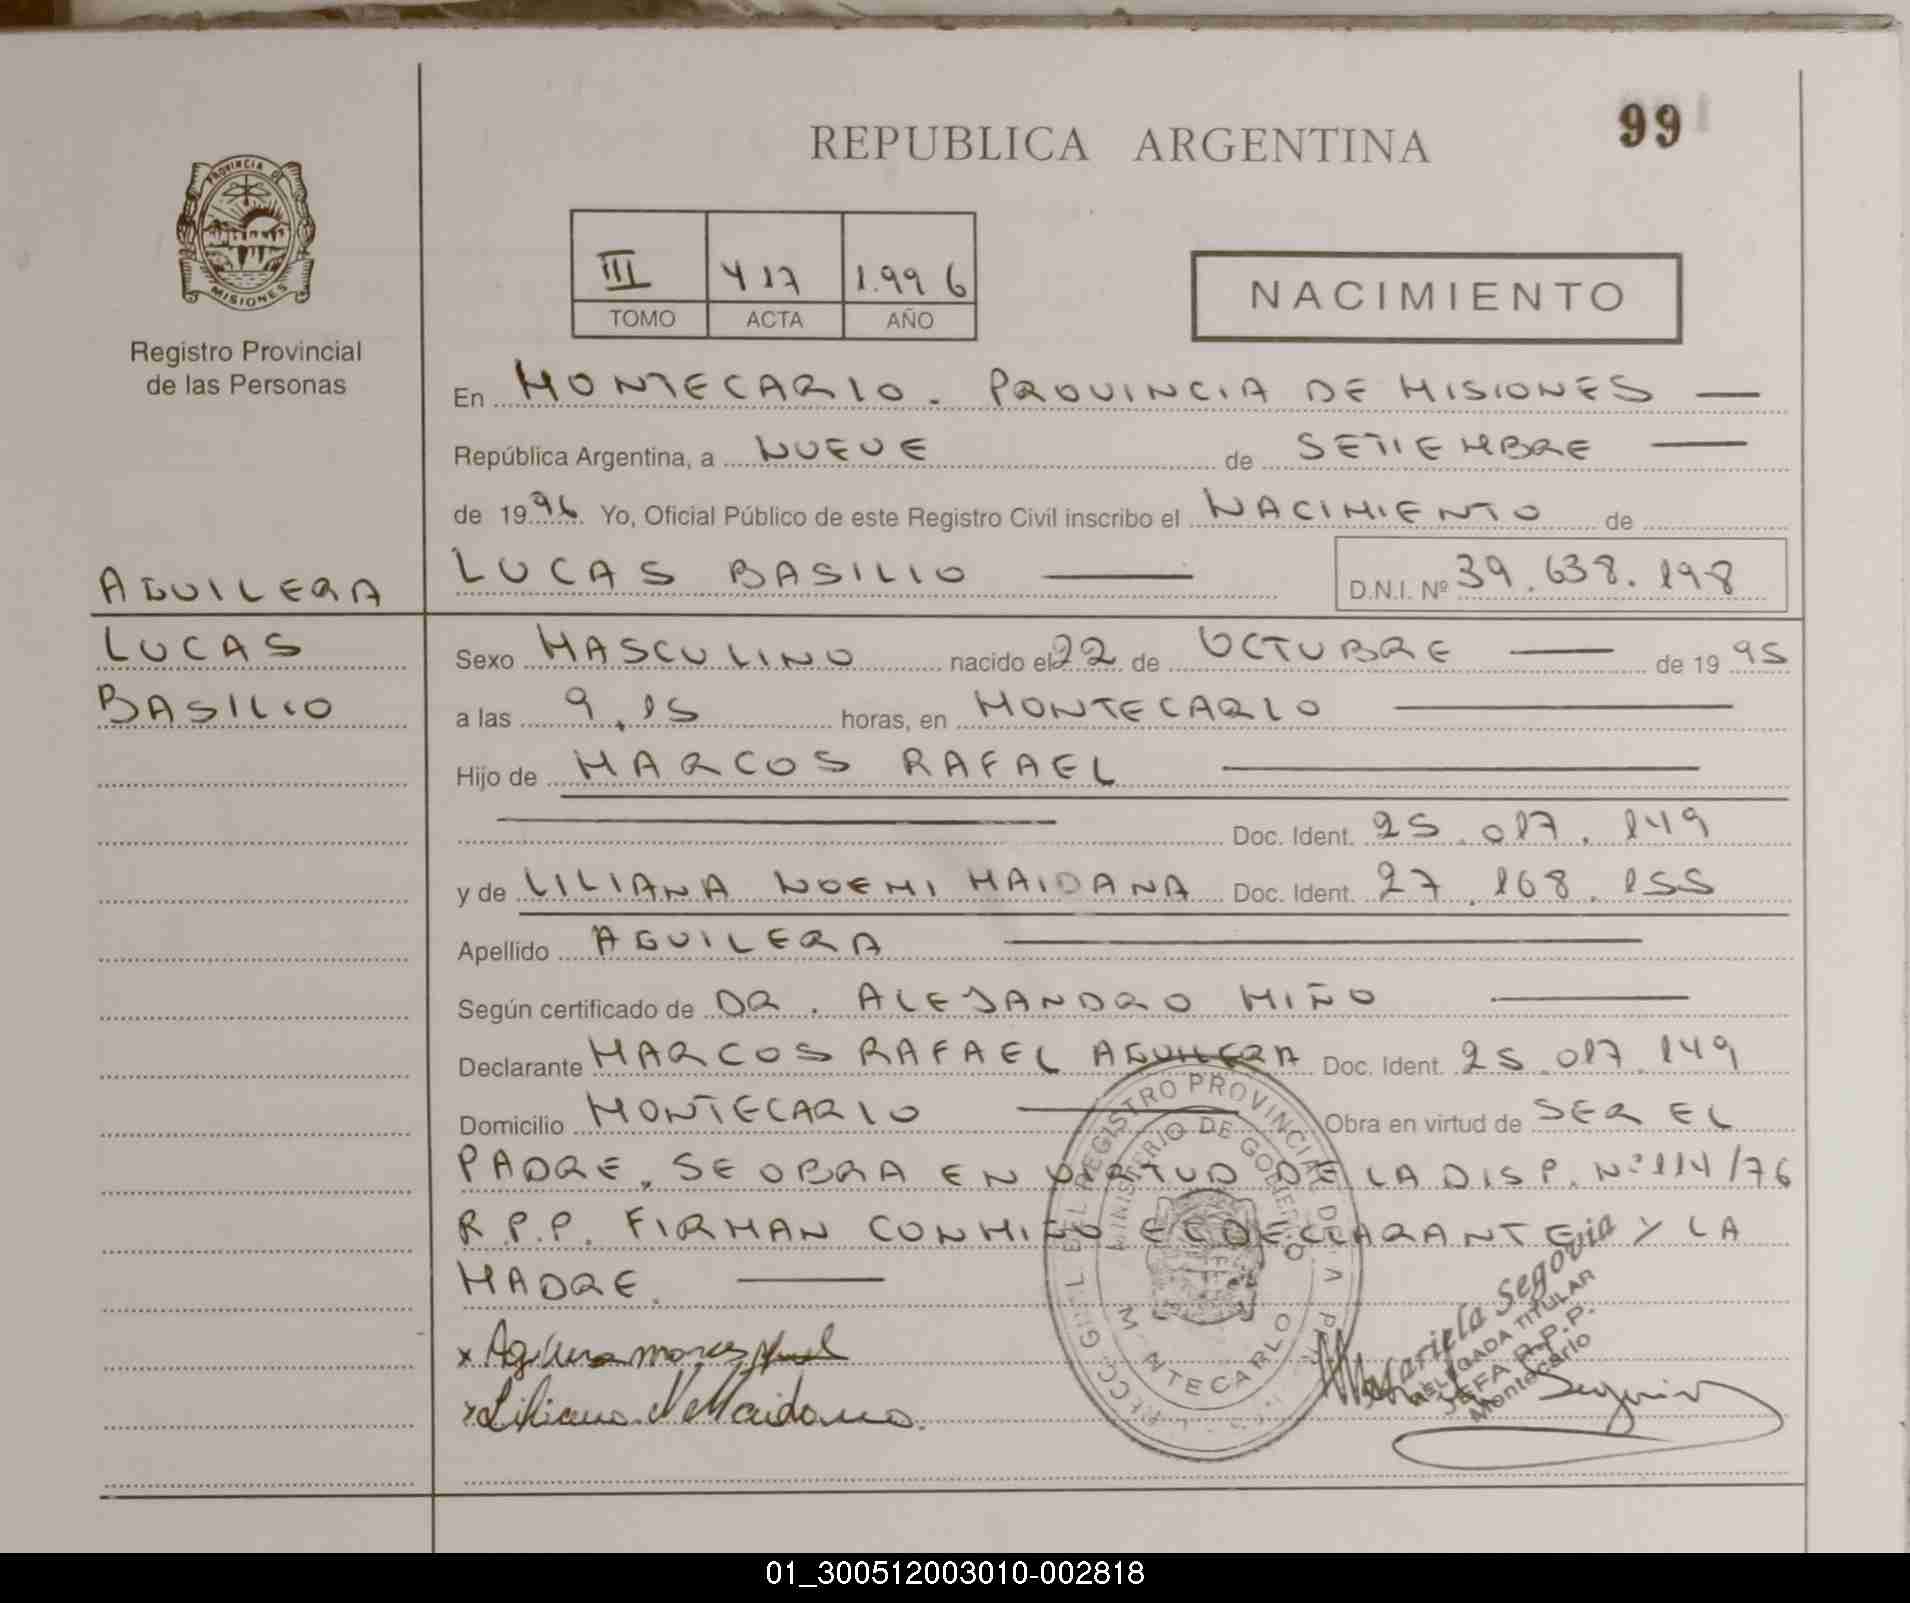 99
REPUBLICA ARGENTINA
PROVINCIA DE
MISIONES
Registro Provincial
de las Personas
III 417 1.996
TOMO ACTA AÑO
NACIMIENTO
En MONTECARLO. PROVINCIA DE MISIONES
República Argentina, a NUEVE de SETIEMBRE
de 1996 Yo, Oficial Público de este Registro Civil inscribo el NACIMIENTO de
AGUILERA
LUCAS BASILIO D.N.I. Nº 39.638.198
LUCAS
Sexo MASCULINO nacido el 22 de OCTUBRE de 1995
BASILIO
a las 9,15 horas, en MONTECARLO
Hijo de MARCOS RAFAEL
Doc. Ident. 25.017.149
y de LILIANA NOEMI MAIDANA Doc. Ident. 27.168.155
Apellido AGUILERA
Según certificado de DR. ALEJANDRO MIÑO
Declarante MARCOS RAFAEL AGUILERA Doc. Ident. 25.017.149
Domicilio MONTECARLO Obra en virtud de SER EL
PADRE. SE OBRA EN VIRTUD DE LA DISP. Nº 114/76
R.P.P. FIRMAN CONMIGO EL DECLARANTE Y LA
MADRE.
x Aguilera marcos
x Liliana N Maidana.
REGISTRO PROVINCIAL DE LA
MINISTERIO DE GOBIERNO
MONTECARLO
Mariela Segovia
DELEGADA TITULAR
JEFA R.P.P.
Montecarlo
01_300512003010-002818